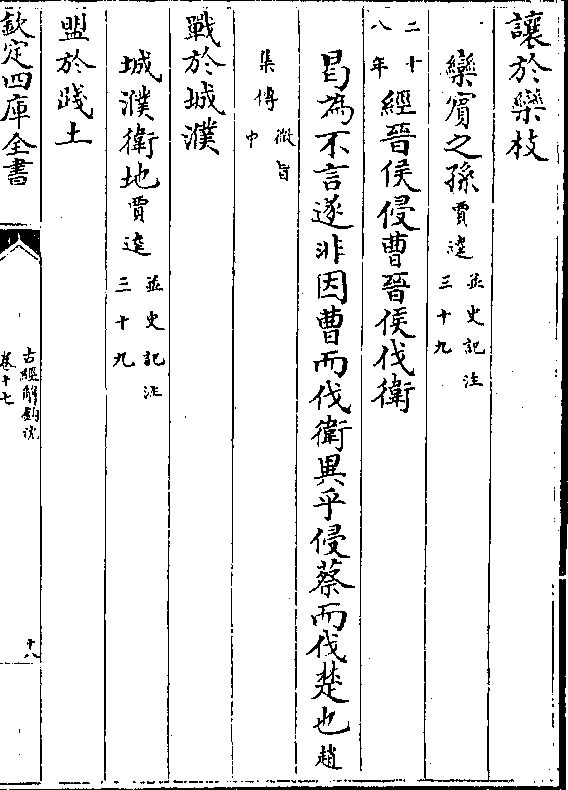 讓於欒枝
欒賓之孫賈逵並史記注三十九
二十八年經晉侯侵曹晉侯伐衛
曷為不言遂非因曹而伐衛異乎侵蔡而伐楚也趙
集傳微旨中
戰於城濮
城濮衛地賈逵並史記注三十九
盟於踐土
欽定四庫全書
古經解鉤沈
卷十七
十八